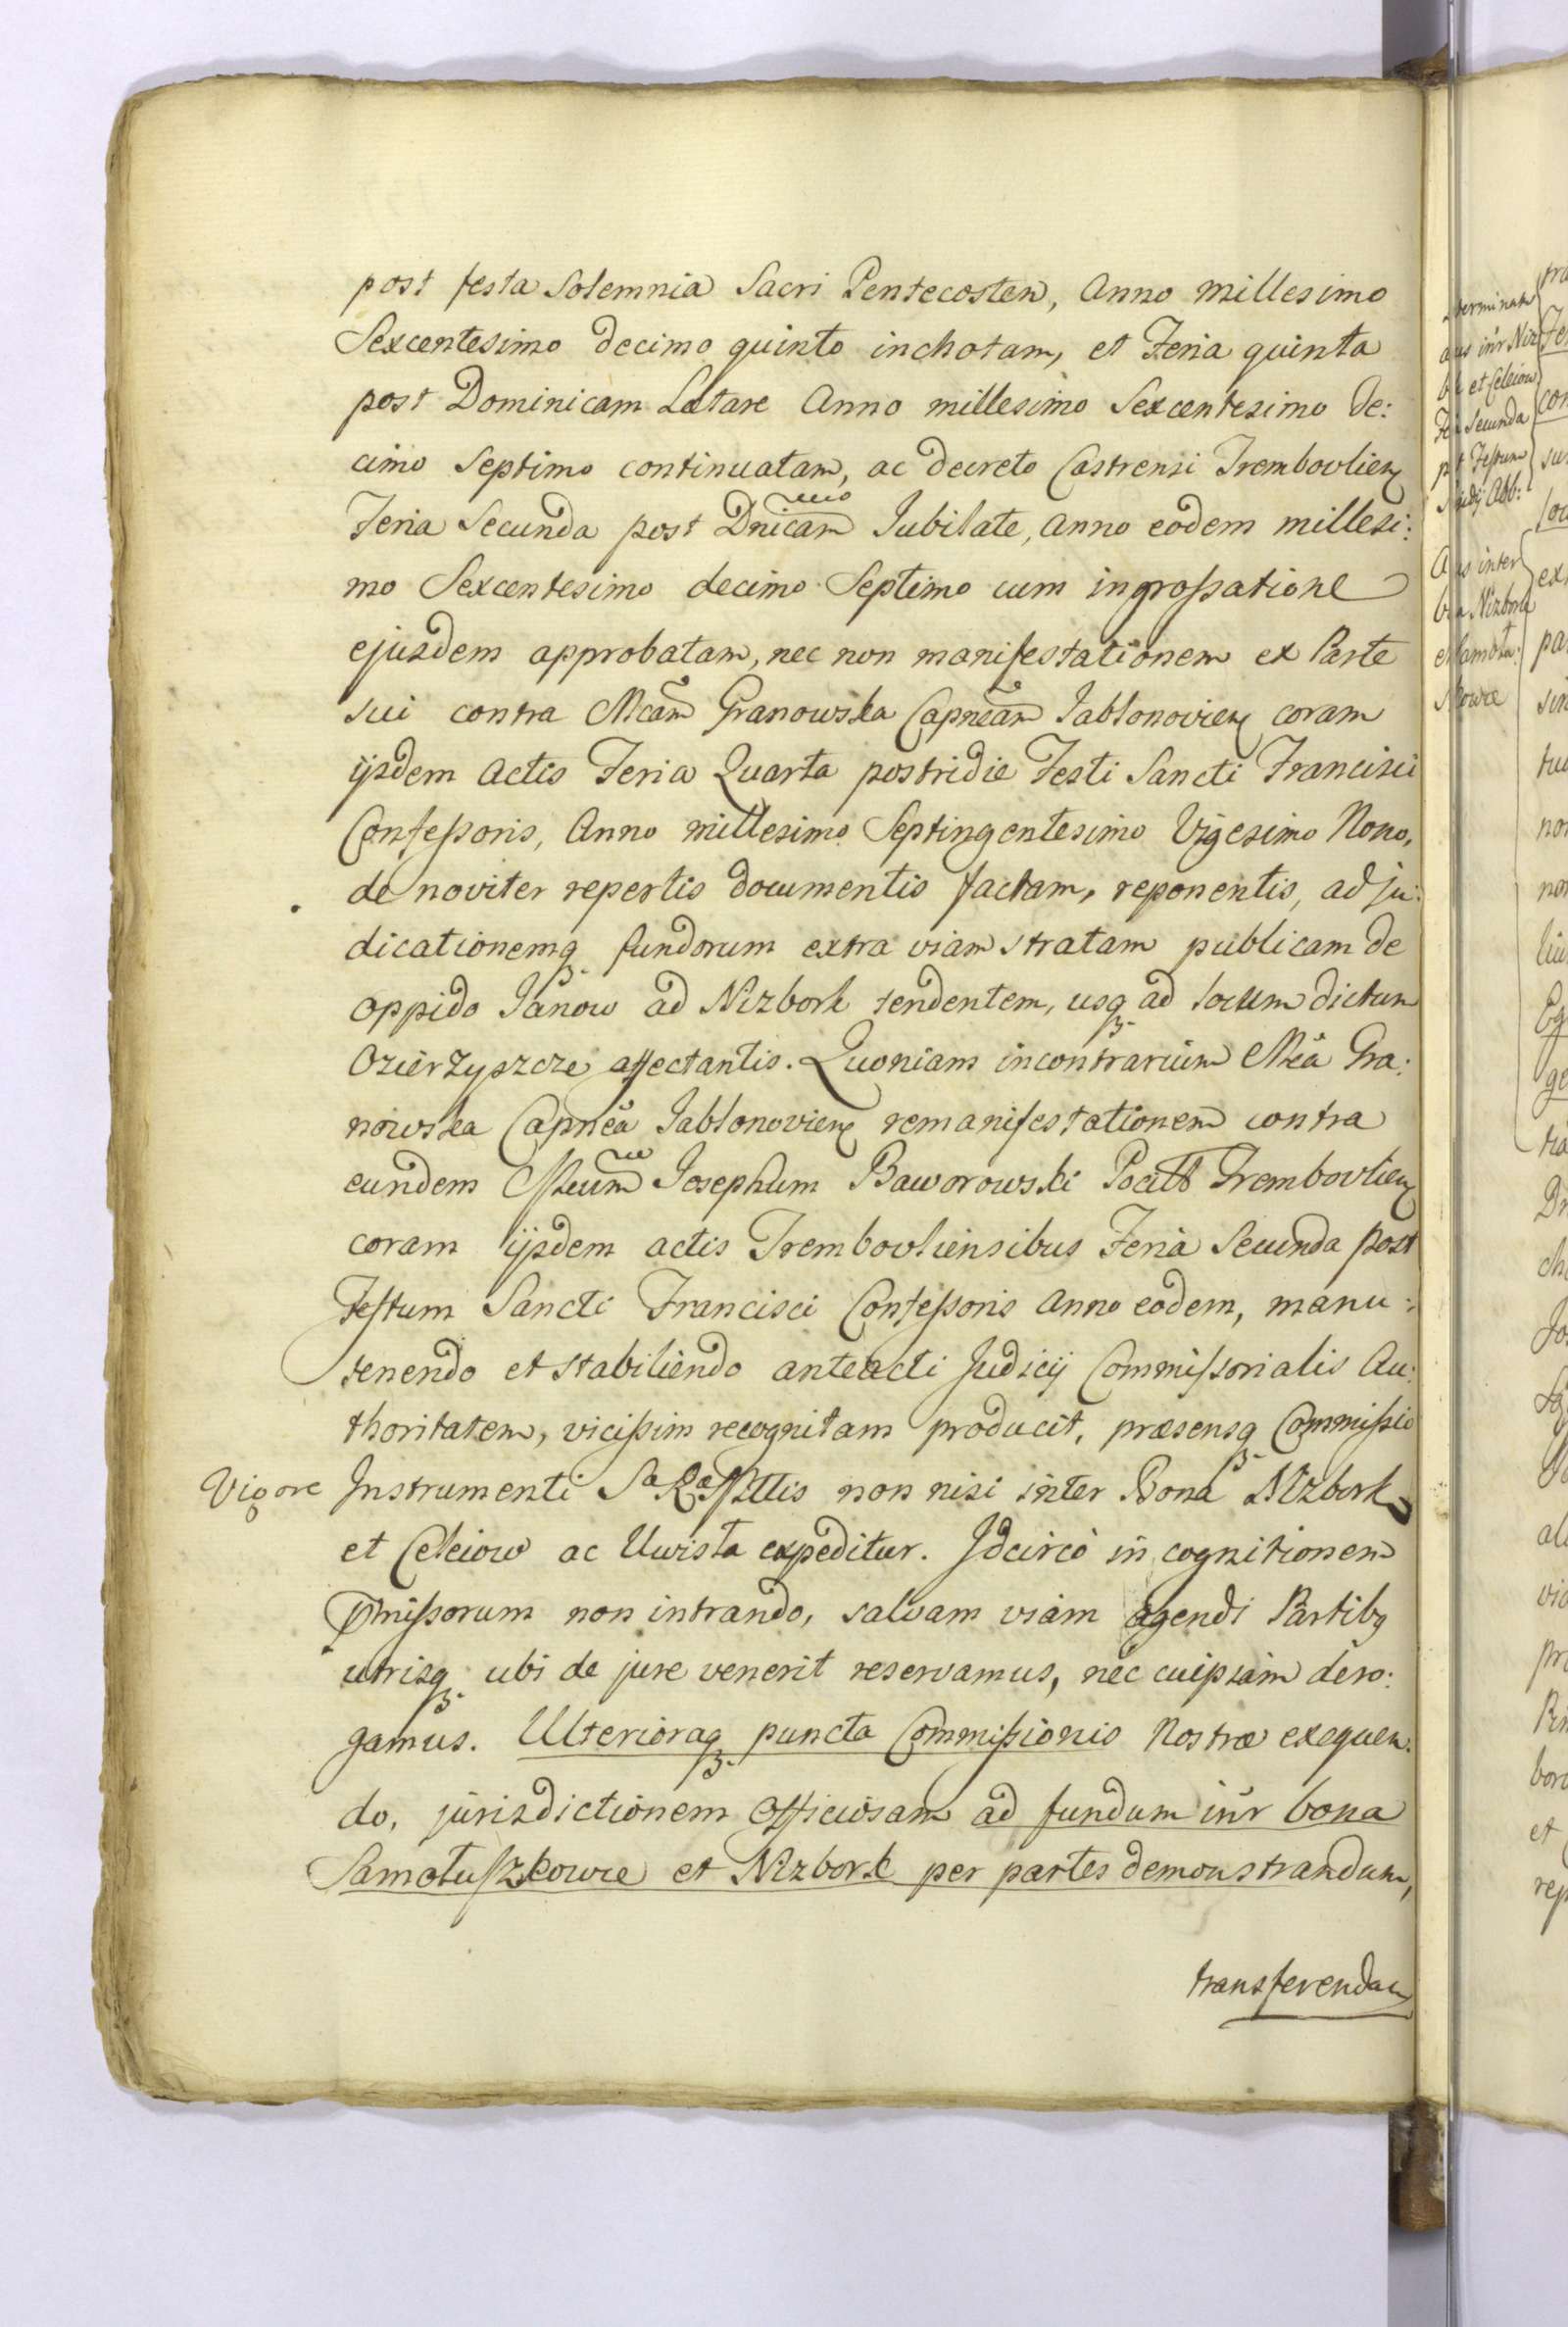 post festa Solemnia Sacri Pentecosten, Anno millesimo
Sexcentesimo decimo quinto inchotam, et Feria quinta
post Dominicam Lætare Anno millesimo Sexcentesimo de:
cimo Septimo continuatam, ac decreto Castrensi Trembovlien
Feria Secunda post Dnicam Jubilate, anno eodem millesi:
mo Sexcentesimo decimo Septimo cum ingrossatione
ejusdem approbatam, nec non manifestationem ex Parte
sui contra Mcam Granowska Capneam Jablonovien coram
ijsdem Actis Feria Quarta postridie Festi Sancti Francisci
Confessoris, Anno millesimo Septingentesimo Vigesimo Nono,
de noviter repertis documentis factam, reponentis, adju:
dicationemq fundorum extra viam stratam publicam de
oppido Janow ad Nizbork tendentem, usq ad locum dictum
Ozierzyszcze affectantis. Quoniam incontrarium Mca Gra:
nowska Capnea Jablonovien remanifestationem contra
eundem Josephum Baworowski Pocill Trembovlien
coram ijsdem actis Trembovliensibus Feria Secunda post
Festum Sancti Francisci Confessoris Anno eodem, manu:
tenendo et stabiliendo anteacti Judicij Commissorialis Au:
thoritatem, vicissim recognitam producit, præsensq Commissio
Vigore Instrumenti Sæ Ræ Mttis non nisi inter Bona Nizbork
et Celeiow ac Uwisla expeditur. Idcirco in cognitionem
pmissorum non intrando, salvam viam agendi Partibq
utrisq ubi de jure venerit reservamus, nec cuipiam dero:
gamus. Ulterioraq puncta Commissionis Nostræ exequen:
do, jurisdictionem Officiosam ad fundum intr bona
Samotuszkowce et Nizbork per partes demonstrandum,
transferendam